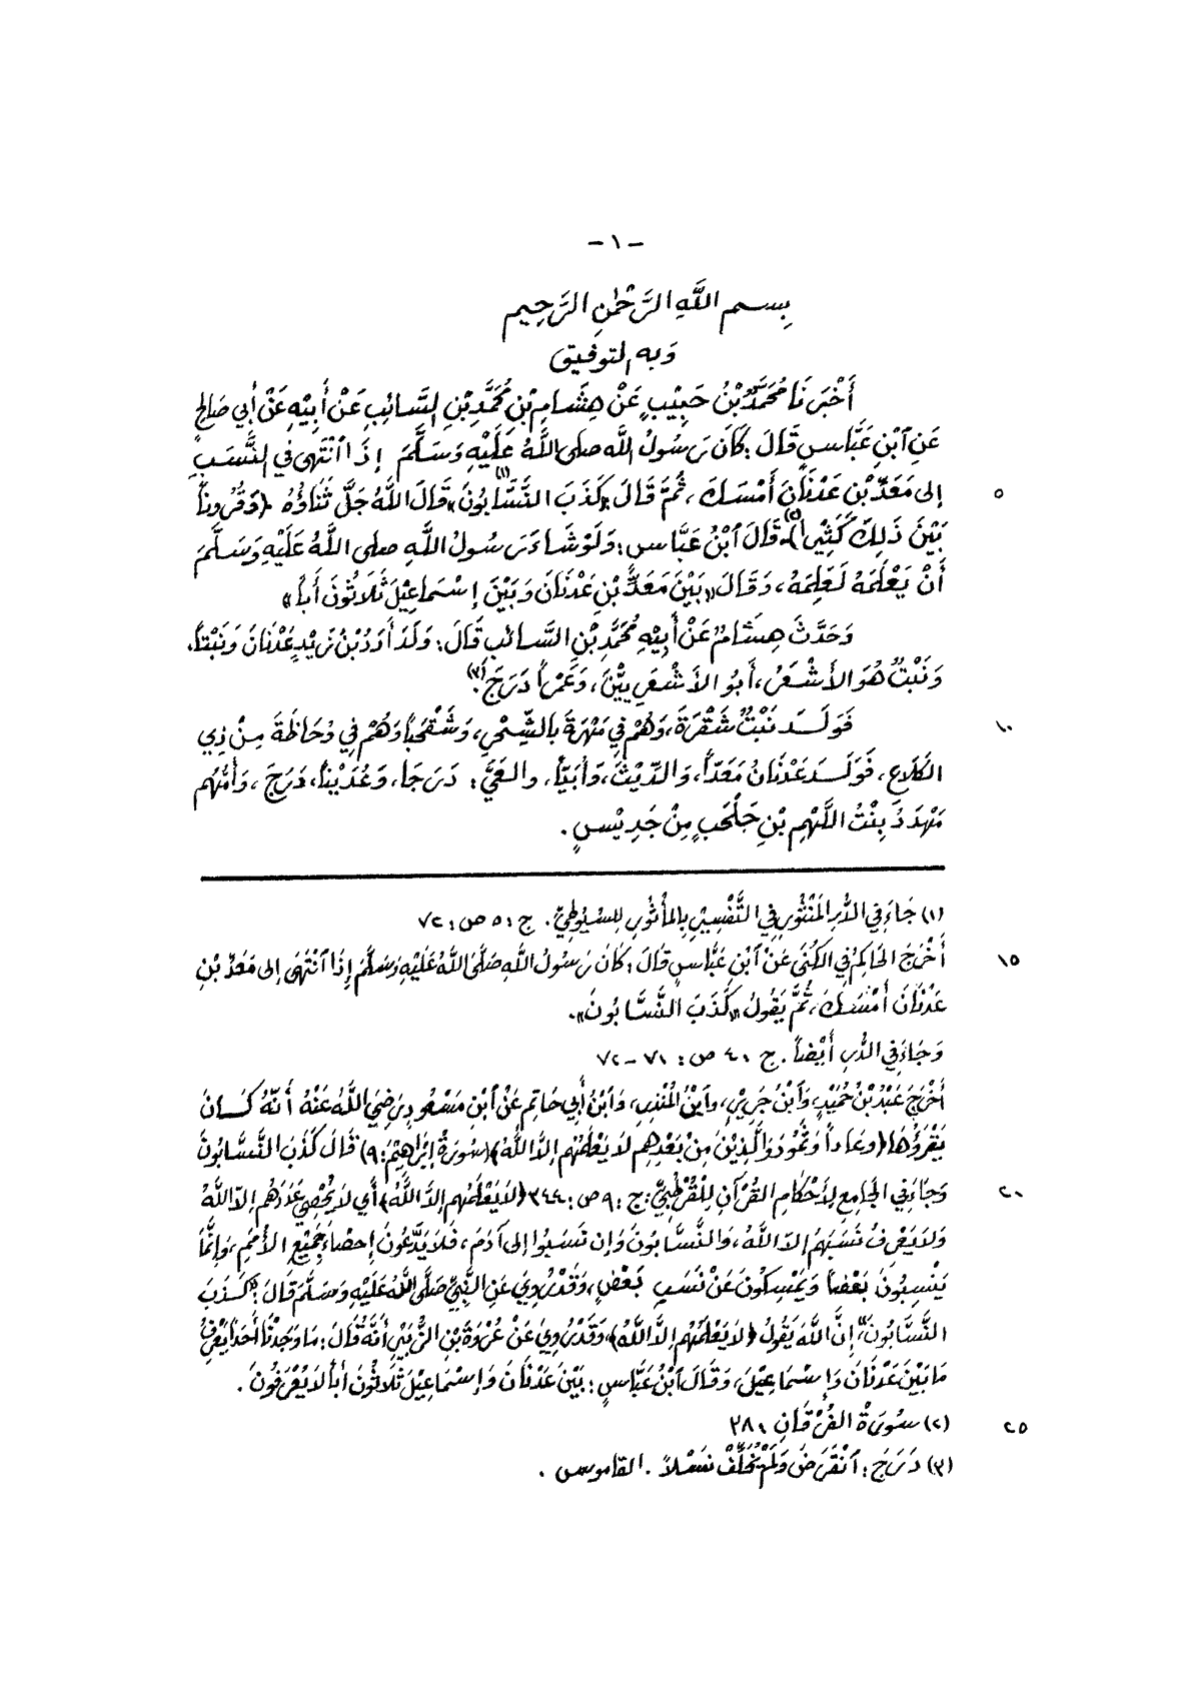 - ١ -
بِسمِ اللَّهِ الرَّحْمٰنِ الرَّحِيمِ
وَبِهِ التوفيق
أَخْبَرَنَا مُحَمَّدُ بْنُ حَبِيْبٍ عَنْ هِشَامِ بْنِ مُحَمَّدِ بْنِ السَّائِبِ عَنْ أَبِيْهِ عَنْ أَبِي صَالِحٍ
عَنِ ٱبْنِ عَبَّاسٍ قَالَ: كَانَ رَسُولُ اللَّه صلى اللَّهُ عَلَيْهِ وَسَلَّمَ إِذَا ٱنْتَهَى في النَّسَبِ
إلى مَعَدِّ بْنِ عَدْنَانَ أَمْسَكَ، ثُمَّ قَالَ «كَذَبَ النَّسَّابُونَ»(١) قَالَ اللَّهُ جَلَّ ثَنَاؤُهُ ﴿وَقُرُوناً ٥
بَيْنَ ذَلِكَ كَثِيْراً﴾(٢) قَالَ ٱبْنُ عَبَّاسٍ: وَلَوْ شَاءَ رَسُولُ اللَّهِ صلى اللَّهُ عَلَيْهِ وَسَلَّمَ
أَنْ يَعْلَمَهُ لَعَلِمَهُ، وَقَالَ «بَيْنَ مَعَدِّ بْنِ عَدْنَانَ وَبَيْنَ إِسْمَاعِيْلَ ثَلَاثُونَ أَباً»
وَحَدَّثَ هِشَامٌ عَنْ أَبِيْهِ مُحَمَّدِ بْنِ السَّائبِ قَالَ: وَلَدَ أُدَدُ بْنُ زَيْدٍ عَدْنَانَ وَنَبْتاً،
وَنَبْتٌ هُوَ الأَشْعَرُ، أَبُو الأَشْعَرِيِّيْنَ، وَعَمْراً دَرَجَ.(٣)
فَوَلَدَ نَبْتٌ شَقْرَةَ، وَهُمْ فِي مَهْرَةَ بِالشِّحْرِ، وَشَقْحَباً وَهُمْ فِي وُحَاظَةَ مِنْ ذِي ١٠
الكَلَاعِ، فَوَلَدَ عَدْنَانُ مَعَدّاً، وَالدِّيْثَ، وَأُبَيّاً، والعَيَّ: دَرَجَا، وَعُدَيْناً، دَرَجَ، وَأُمُّهُم
مَهْدَدُ بِنْتُ اللَّهْمِ بْنِ جَلْحَبٍ مِنْ جَدِيْسٍ.
(١) جَاءَ فِي الدُّرِ المَنْثُورِ فِي التَّفْسِيْرِ بِالمأْثُورِ لِلسُيُوطِيِّ. ج: ٥ ص: ٧٢
أَخْرَجَ الحَاكِمُ فِي الكُنَى عَنْ ٱبْنِ عَبَّاسٍ قَالَ: كَانَ رَسُولُ اللَّهِ صَلَّى اللَّهُ عَلَيْهِ وَسَلَّمَ إِذَا ٱنْتَهَى إلى مَعَدِّ بْنِ ١٥
عَدْنَانَ أَمْسَكَ، ثُمَّ يَقُولُ «كَذَبَ النَّسَّابُونَ».
وَجَاءَ فِي الدُّرِ أَيْضاً. ج: ٤ ص: ٧١ - ٧٢
أَخْرَجَ عَبْدُ بْنُ حُمَيْدٍ، وَٱبْنُ جَرِيْرٍ، وٱبْنُ المُنْذِرِ، وَٱبْنُ أَبِي حَاتِمٍ عَنْ ٱبْنِ مَسْعُودٍ رَضِيَ اللَّهُ عَنْهُ أَنَّهُ كَانَ
يَقْرَؤُهَا ﴿وعَاداً وَثَمُودَ وَالَّذِيْنَ مِنْ بَعْدِهِم لَا يَعْلَمُهُم إلاَّ اللَّهُ﴾ (سُورَةُ إبْرَاهِيْمَ: ٩) قَالَ كَذَبَ النَّسَّابُونَ
وَجَاءَ فِي الجَامِعِ لِأَحْكَامِ القُرْآنِ لِلْقُرْطُبِيِّ: ج: ٩ ص: ٣٤٤ ﴿لَا يَعْلَمُهُم إلاَّ اللَّهُ﴾ أَي لَا يُحْصِي عَدَدَهُم إلاّ اللَّهُ ٢٠
وَلَا يَعْرِفُ نَسَبَهُم إلاّ اللَّهُ، وَالنَّسَّابُونَ وَإِن نَسَبُوا إلى آدَمَ، فَلَا يَدَّعُونَ إِحْصَاءَ جَمِيْعِ الأُمَمِ، وَإِنَّمَا
يَنْسِبُونَ بَعْضاً وَيَمْسِكُونَ عَنْ نَسَبِ بَعْضٍ، وَقَدْ رُوِيَ عَنِ النَّبِيِّ صَلَّى اللَّهُ عَلَيْهِ وَسَلَّمَ قَالَ: «كَذَبَ
النَّسَّابُونَ» إِنَّ اللَّهَ يَقُولُ ﴿لَا يَعْلَمُهُم إلاَّ اللَّهُ﴾، وَقَدْ رُوِيَ عَنْ عُرْوَةَ بْنِ الزُّبَيْرِ أَنَّهُ قَالَ: مَا وَجَدْنَا أَحَداً يَعْرِفُ
مَا بَيْنَ عَدْنَانَ وَإِسْمَاعِيْلَ، وَقَالَ ٱبْنُ عَبَّاسٍ: بَيْنَ عَدْنَانَ وَإِسْمَاعِيْلَ ثَلَاثُونَ أَباً لَا يُعْرَفُونَ.
(٢) سُورَةُ الفُرْقَانِ ٣٨. ٢٥
(٣) دَرَجَ: ٱنْقَرَضَ وَلَمْ يُخَلِّفْ نَسْلاً. القاموس.